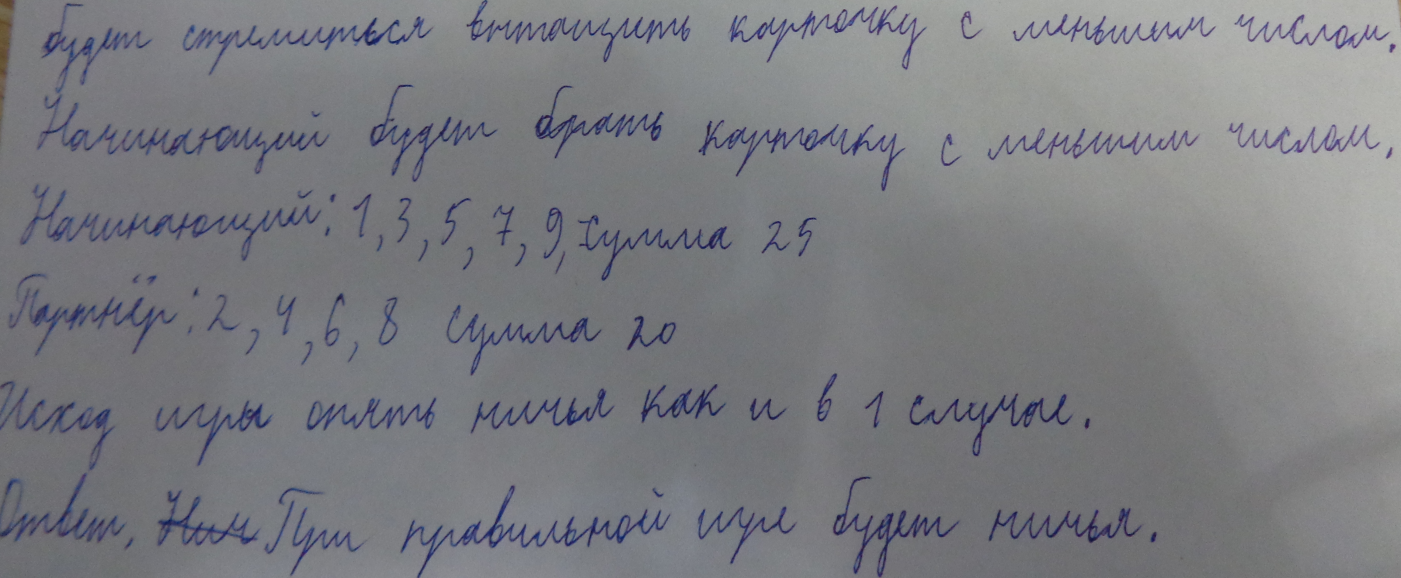 будет стремиться вытащить карточку с меньшим числом.
Начинающий будет брать карточку с меньшим числом.
Начинающий: 1, 3, 5, 7, 9, сумма 25
Партнёр: 2, 4, 6, 8 сумма 20
Исход игры опять ничья как и в 1 случае.
Ответ, Нич При правильной игре будет ничья.